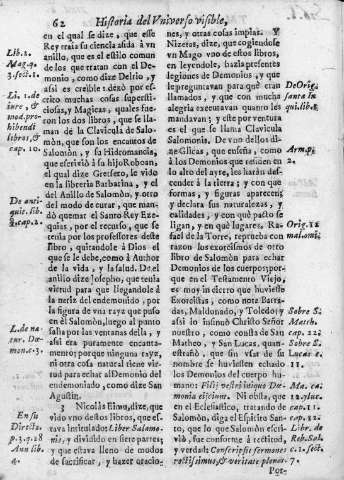 62 Historia del Vniverso visible,
en el qual se dize, que esse
Rey traia su ciencia asida à vn
anillo, que es el estilo comun
de los que tratan con el De-
monio, como dize Delrio, y
assi es creible: dexò por es-
crito muchas cosas supersti-
ciosas, y Magicas, quales fue-
ron los dos libros, que se lla-
man de la Clavicula de Salo-
mòn, que son los encantos de
Salomòn, y su Hidromancia,
que escrivió à su hijo Roboan,
el qual dize Gretsero, se vido
en la libreria Barbarina, y el
del Anillo de Salomòn, y otro
del modo de curar, que man-
dò quemar el Santo Rey Eze-
quias, por el recurso, que se
tenia por los professores deste
libro, quitandole à Dios el
que se le debe, como à Author
de la vida, y la salud. De el
anillo dize Iosepho, que tenia
virtud para que llegandole à
la neriz del endemoniado, por
la figura de vna rayz que puso
en èl Salomòn, luego al punto
salia por las ventanas della, y
assi era puramente encanta-
mento; porque ninguna rayz,
ni otra cosa natural tiene vir-
tud para echar al Demonio del
endemoniado, como dize San
Agustin.
3 Nicolàs Eiwo, dize, que
vido vno destos libros, que es-
tava intitulado: Liber Salamo-
nis, y dividido en siete partes;
y que estava lleno de modos
de sacrificar, y hazer oracio-
Lib. 2.
Mag. q.
3. sect. 1.
Li. 1. de
iure, &
mod. pro-
hibendi
libros, &
cap. 10.
De anti-
quit. lib.
8. cap. 2.
L. de na-
tur. Dæ-
mon. c. 3.
En su
Directo.
p. 3. q. 28
Ann lib.
4.
nes, y otras cosas impias. Y
Nizeras, dize, que cogiendose
vn Mago vno de essos libros,
en leyendole, hazia presentes
legiones de Demonios, y que
le preguntavan para què eran
llamados, y que con mucha
alegria executavan quanto les
mandavan; y este por ventura
es el que se llama Clavicula
Salomonis. De vno dellos di-
ze Glicas, que enseña, como
à los Demonios que residen en
lo alto del ayre, les haràn des-
cender à la tierra; y con que
formas, y figuras aparecen;
y declara sus naturalezas, y
calidades, y con què pacto se
ligan, y en què lugares. Ra-
fael de la Torre, reprueba con
razon los exorcismos de otro
libro de Salomòn para echar
Demonios de los cuerpos; por-
que en el Testamento Viejo,
es muy in cierto que huviesse
Exorcistas, como nota Barra-
das, Maldonado, y Toledo; y
assi lo insinuò Christo Señor
nuestro, como consta de San
Matheo, y San Lucas, quan-
estrañò, que sin vsar de sus
nombre se huviessen echado
los Demonios del cuerpo hu-
mano: Filij vestri in quo Dæ-
monia eiicium. Ni obsta, que
en el Eclesiastico, tratando de
Salomòn, diga el Espiritu San-
to, que lo que Salomòn escri-
viò, fue conforme à rectitud,
y verdad: Conscripsit sermones
rectissimus, & veritate plenos.
Por-
De Orig.
sacra In
qui. lib. 8.
Arm. p.
2.
Orig. 12
mal. omi.
Sobre S.
Matth.
cap. 22.
Sobre S.
Lucas c.
11.
cap. 11.
Libr. de
Reb. Sal.
c. 1. sect.
7.